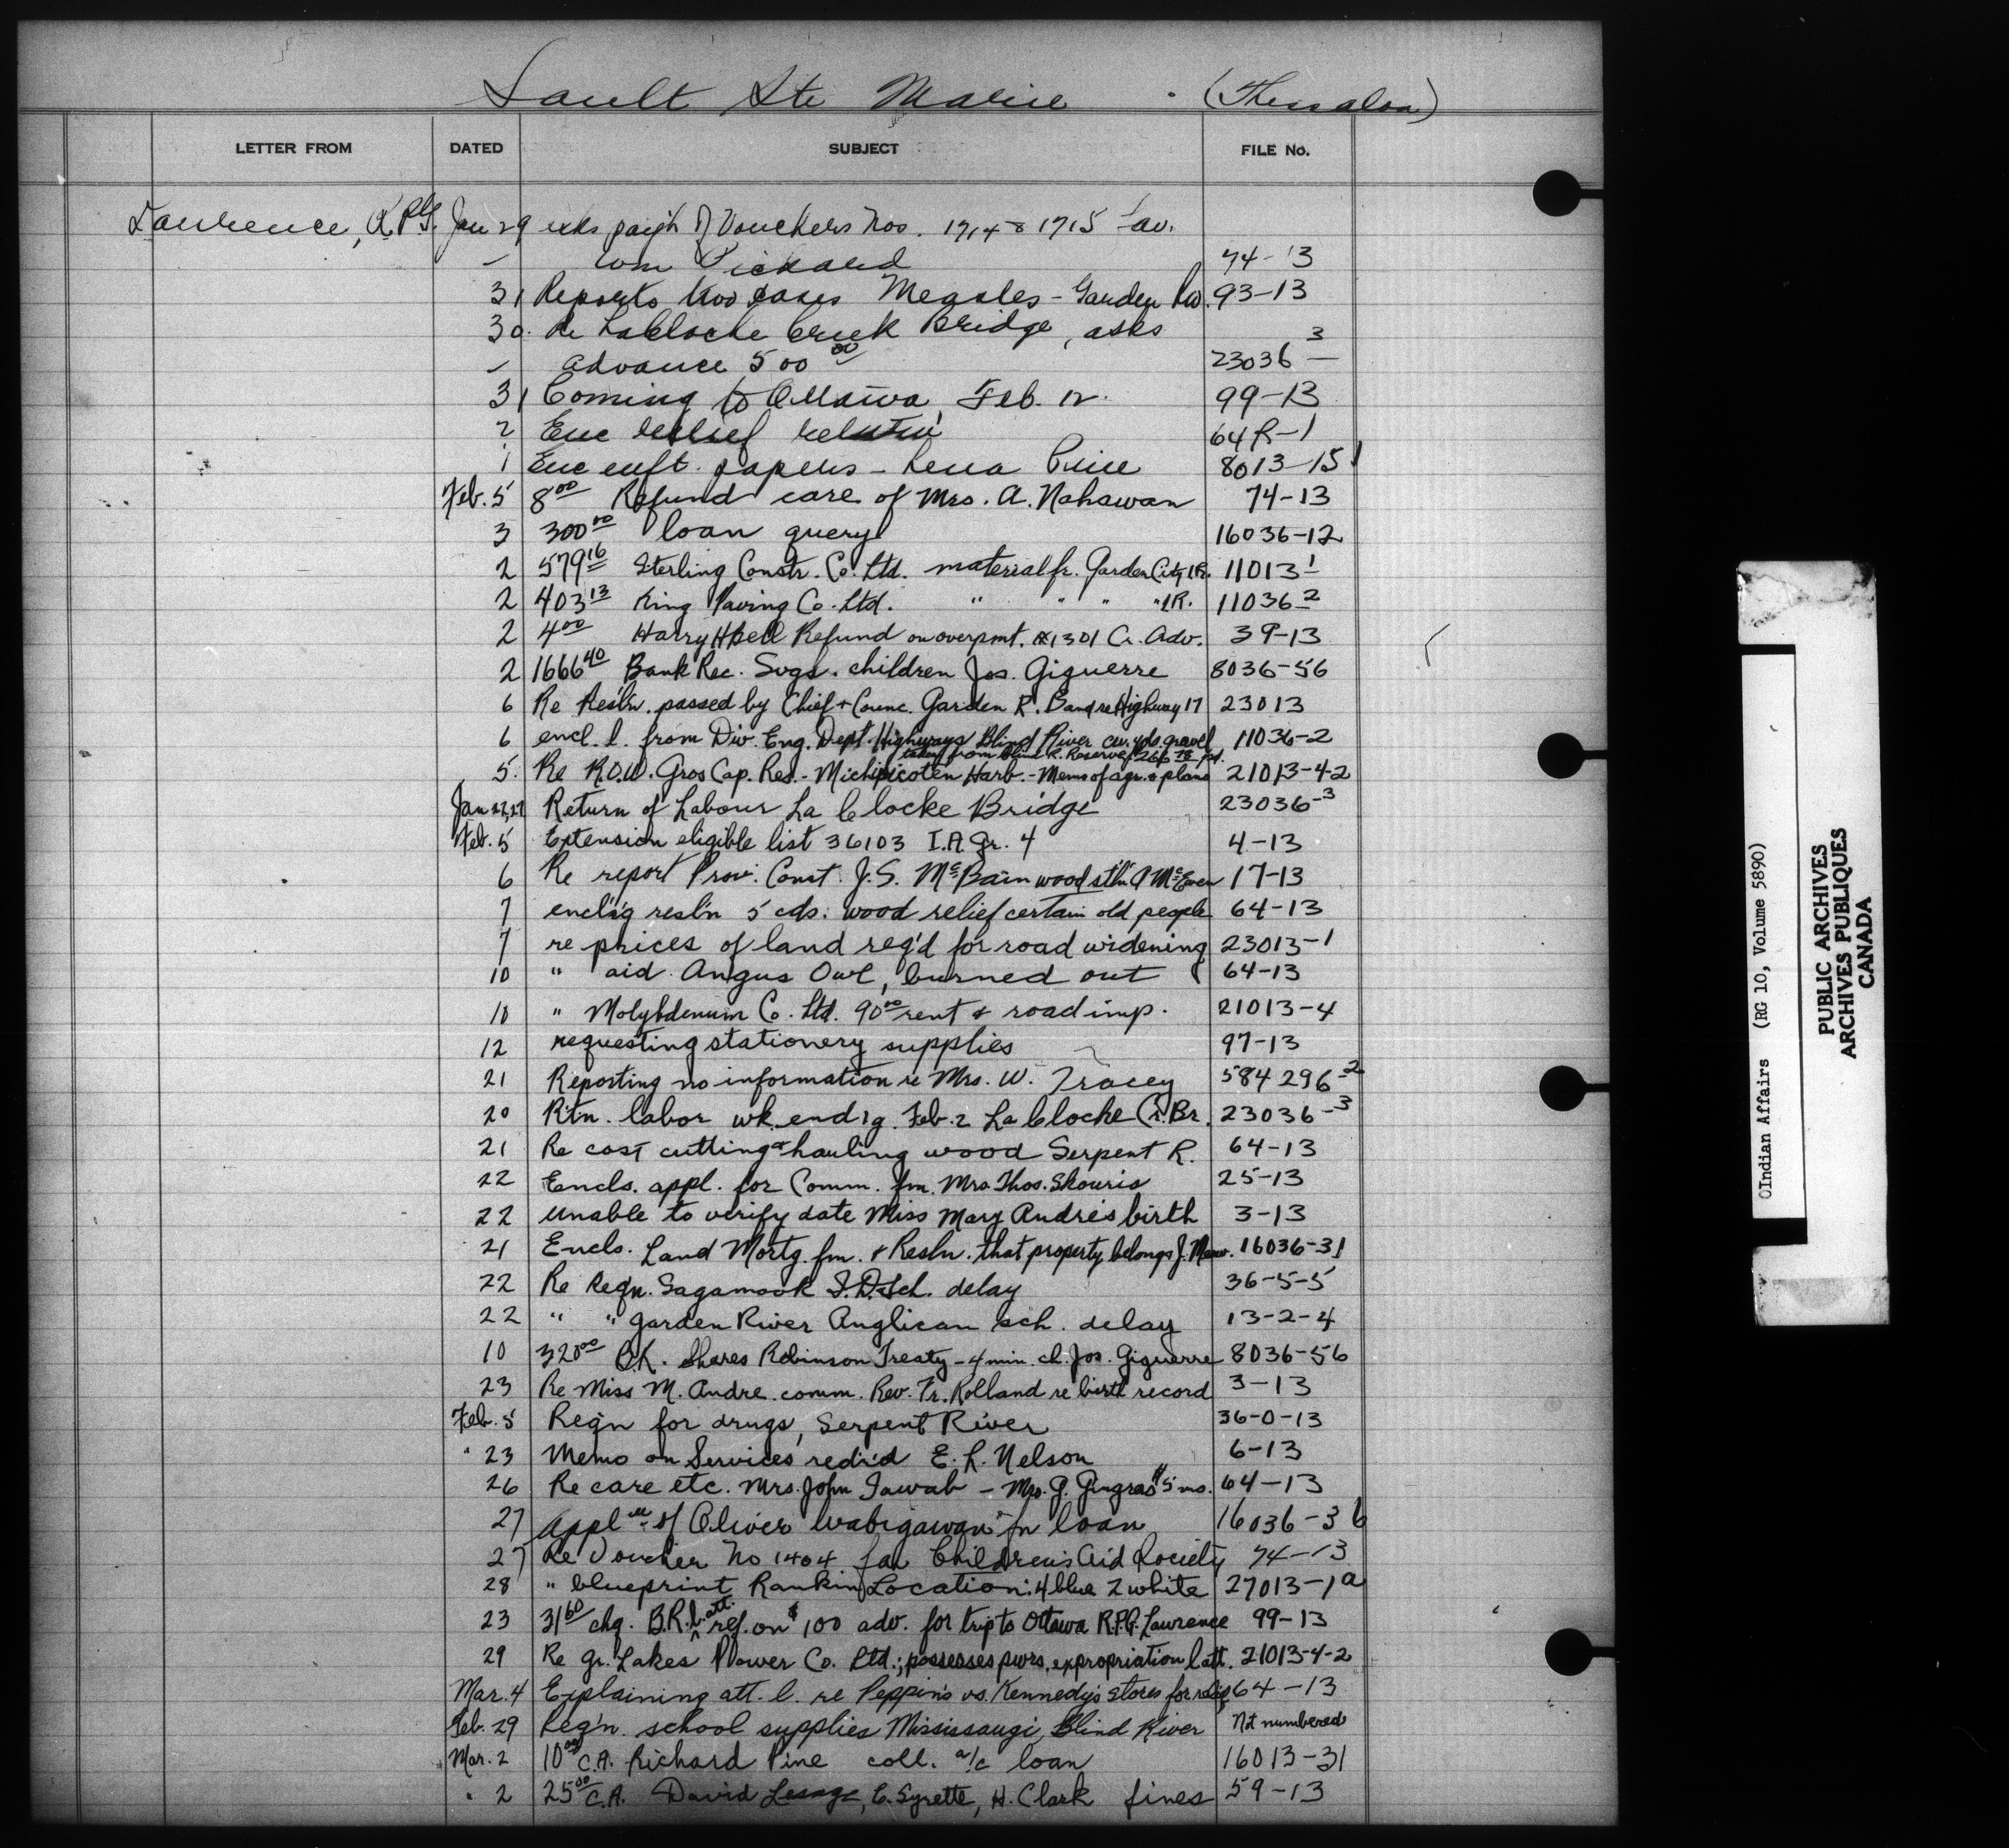 Sault Ste Marie (Thessalon)
LETTER FROM DATED SUBJECT FILE No.
Lawrence, R.P.G. Jan 29 asks paym't of Vouchers Nos. 1714 & 1715 fav.
Wm Pickard 74-13
31 Reports two cases Measles - Garden Riv. 93-13
30. Re LaCloche Creek Bridge, asks
advance 500 00 23036-3
31 Coming to Ottawa, Feb. 12. 99-13
2 Enc relief 64R-1
1 Enc enft. papers - Lena 8013-15
Feb. 5 8 00 Refund care of Mrs. A. Nahawan 74-13
3 300 00 loan query 16036-12
2 579 16 Sterling Constr. Co. Ltd. material fr. Garden City I.R. 11013-1
2 403 13 King Paving Co. Ltd. " " " " I.R. 11036-2
2 4 00 Harry Hbell Refund on overpmt. 1301 Cr. Adv. 39-13
2 1666 40 Bank Rec. Svgs. children Jos. Giguerre 8036-56
6 Re Res'l'n. passed by Chief + Counc. Garden R. Band re Highway 17 23013
6 encl. l. from Div. Eng. Dept. Highways Blind River cu. yds. gravel 11036-2
taken from Blind R. Reserve $266 pd.
5. Re R.O.W. Gros Cap. Res. - Michipicoten Harb. - Memo of agr. & plans 21013-4-2
Jan 22, 27 Return of Labour La Clocke Bridge 23036-3
Feb. 5 Extension eligible list 36103 I.A. Gr. 4 4-13
6 Re report Prov. Const. J.S. McBain wood st'ln A McEwen 17-13
7 encls'g resl'n 5 cds. wood relief certain old people 64-13
7 re prices of land req'd for road widening 23013-1
10 " aid Angus Owl, burned out 64-13
10 " Molybdenum Co. Ltd. 90 00 rent & road imp. 21013-4
12 requesting stationery supplies 97-13
21 Reporting no information re Mrs. W. Tracey 584296-2
20 Rtn. labor wk. end'g. Feb. 2 La Clocke Cr. Br. 23036-3
21 Re cost cutting & hauling wood Serpent R. 64-13
22 Encls. appl. for Comm. fm. Mrs Thos. Skouris 25-13
22 Unable to verify date Miss Mary Andre's birth 3-13
21 Encls. Land Mortg. fm. & Resln. that property belongs J. 16036-31
22 Re Reqn. Sagamook I.D. Sch. delay 36-5-5
22 " " Garden River Anglican sch. delay 13-2-4
10 320 00 B.R. Shares Robinson Treaty - 4 min. ch. Jos. Giguerre 8036-56
23 Re Miss M. Andre comm. Rev. Fr. Rolland re birth record 3-13
Feb. 5 Req'n for drugs, Serpent River 36-0-13
" 23 Memo on Services red'r'd E. R. Nelson 6-13
26 Re care etc. Mrs. John Jawab - Mrs. G. Gingras $5 mo. 64-13
27 Appl'n of Oliver Wabigawan fr loan 16036-36
27 Re Voucher No 1404 fav Children's Aid Society 74-13
28 " blueprint Rankin Location: 4 blue 2 white 27013-1a
23 31 60 chq. B.R. l. att. ref. on $100 adv. for trip to Ottawa R.P.G. Lawrence 99-13
29 Re Gr. Lakes Power Co. Ltd.; possesses pwrs. expropriation l att. 21013-4-2
Mar. 4 Explaining att. l. re Peppin's vs. Kennedy's stores for relief 64-13
Feb. 29 Req'n. school supplies Mississaugi, Blind River Not numbered
Mar. 2 10 00 C.A. Richard Pine coll. a/c loan 16013-31
" 2 25 00 C.A. David Lesage, C. Syrette, H. Clark fines 59-13
©Indian Affairs (RG 10, Volume 5890)
PUBLIC ARCHIVES
ARCHIVES PUBLIQUES
CANADA